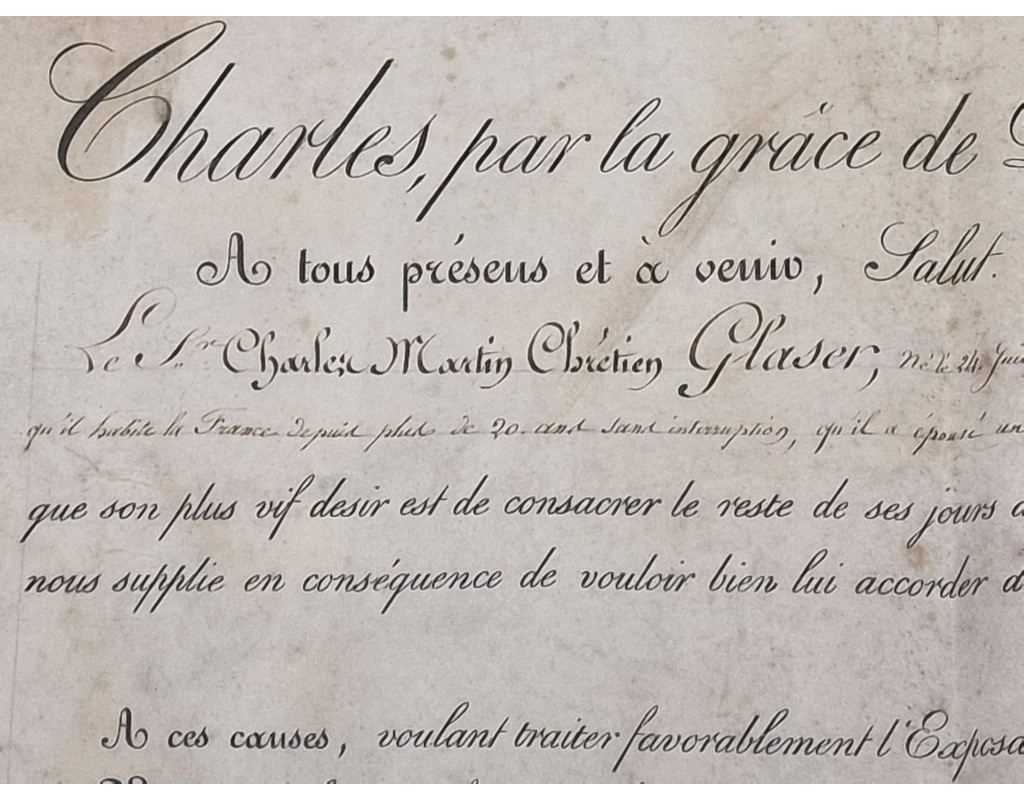 Charles, par la grâce de
A tous présens et à venir, Salut.
Le Sr. Charles Martin Chrétien Glaser, né le 24. Juin
qu'il habite la France depuis plus de 20. ans sans interruption, qu'il a épousé un
que son plus vif desir est de consacrer le reste de ses jours
nous supplie en conséquence de vouloir bien lui accorder
A ces causes, voulant traiter favorablement l'Exposa